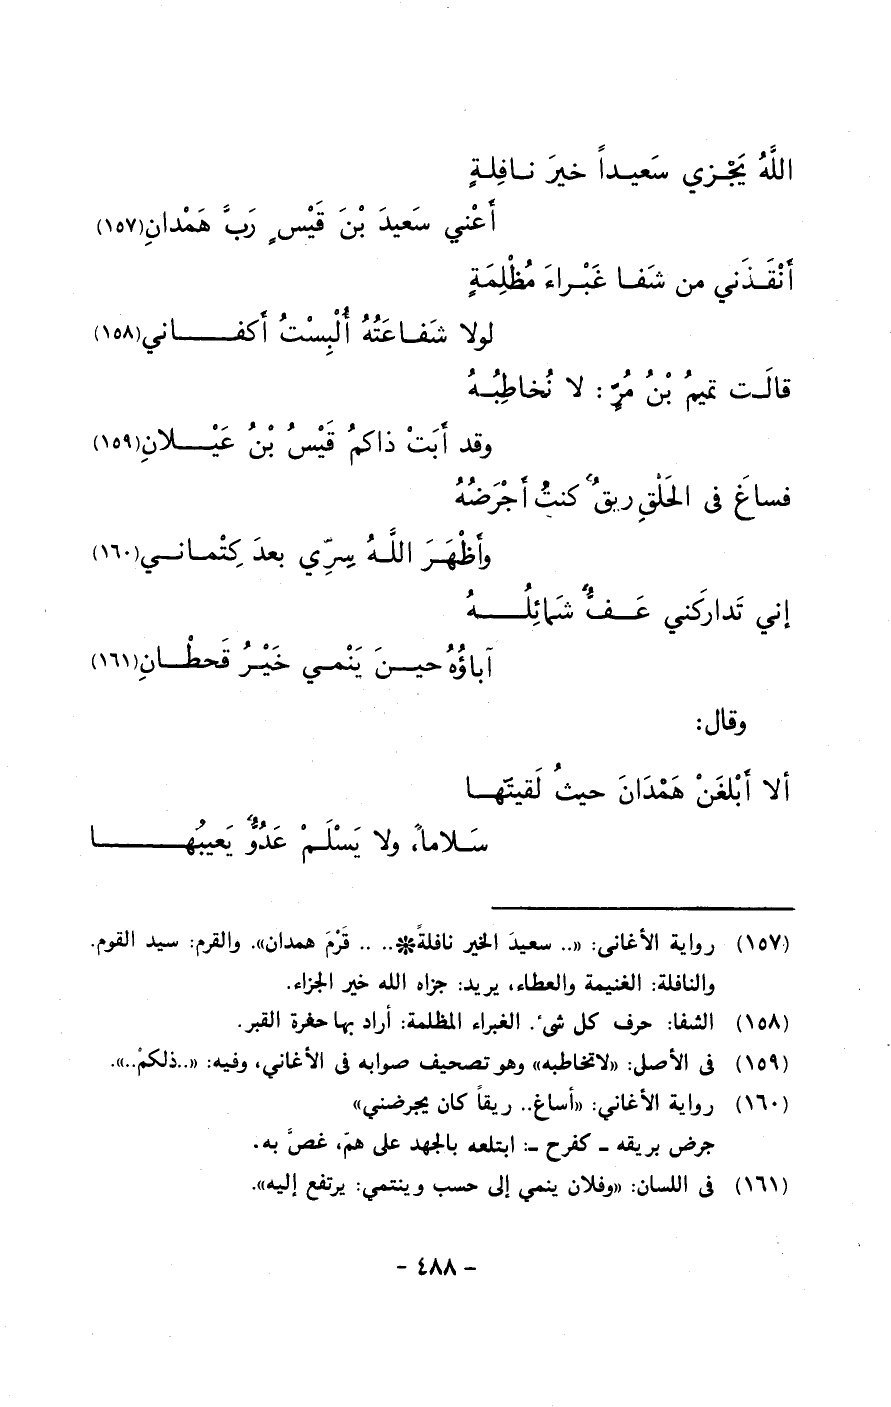 اللَّهُ يَجْزي سَعيداً خيرَ نافِلةٍ
أَعْني سَعيدَ بْنَ قَيْسٍ رَبَّ هَمْدانِ(١٥٧)
أَنْقَذَني من شَفا غَبْراءَ مُظْلِمَةٍ
لولا شَفاعَتُهُ أُلْبِسْتُ أكفاني(١٥٨)
قالَت تميمُ بْنُ مُرٍّ : لا نُخاطِبُهُ
وقد أَبَتْ ذاكمُ قَيْسُ بْنُ عَيْلانِ(١٥٩)
فساغَ فى الحَلْقِ ريقٌ كنتُ أَجْرَضُهُ
وأَظْهَرَ اللَّهُ سِرِّي بعدَ كِتْماني(١٦٠)
إني تَدارَكَني عَفٌّ شَمائِلُهُ
آباؤُهُ حينَ يَنْمي خَيْرُ قَحطْانِ(١٦١)
وقال:
ألا أَبْلِغَنْ هَمْدَانَ حيثُ لَقيتَها
سَلاماً، ولا يَسْلَمْ عَدُوٌّ يَعيبُها
(١٥٧) رواية الأغانى: «.. سعيدَ الخير نافلةً* .. .. قَرْمَ همدان». والقرم: سيد القوم.
والنافلة: الغنيمة والعطاء، يريد: جزاه الله خير الجزاء.
(١٥٨) الشفا: حرف كل شىء. الغبراء المظلمة: أراد بها حفرة القبر.
(١٥٩) فى الأصل: «لاتخاطبه» وهو تصحيف صوابه فى الأغاني، وفيه: «..ذلكمْ..».
(١٦٠) رواية الأغاني: «أساغ.. ريقاً كان يجرضني»
جرض بريقه ـ كفرح ـ: ابتلعه بالجهد على همّ، غصَّ به.
(١٦١) فى اللسان: «وفلان ينمي إلى حسب وينتمي: يرتفع إليه».
- ٤٨٨ -